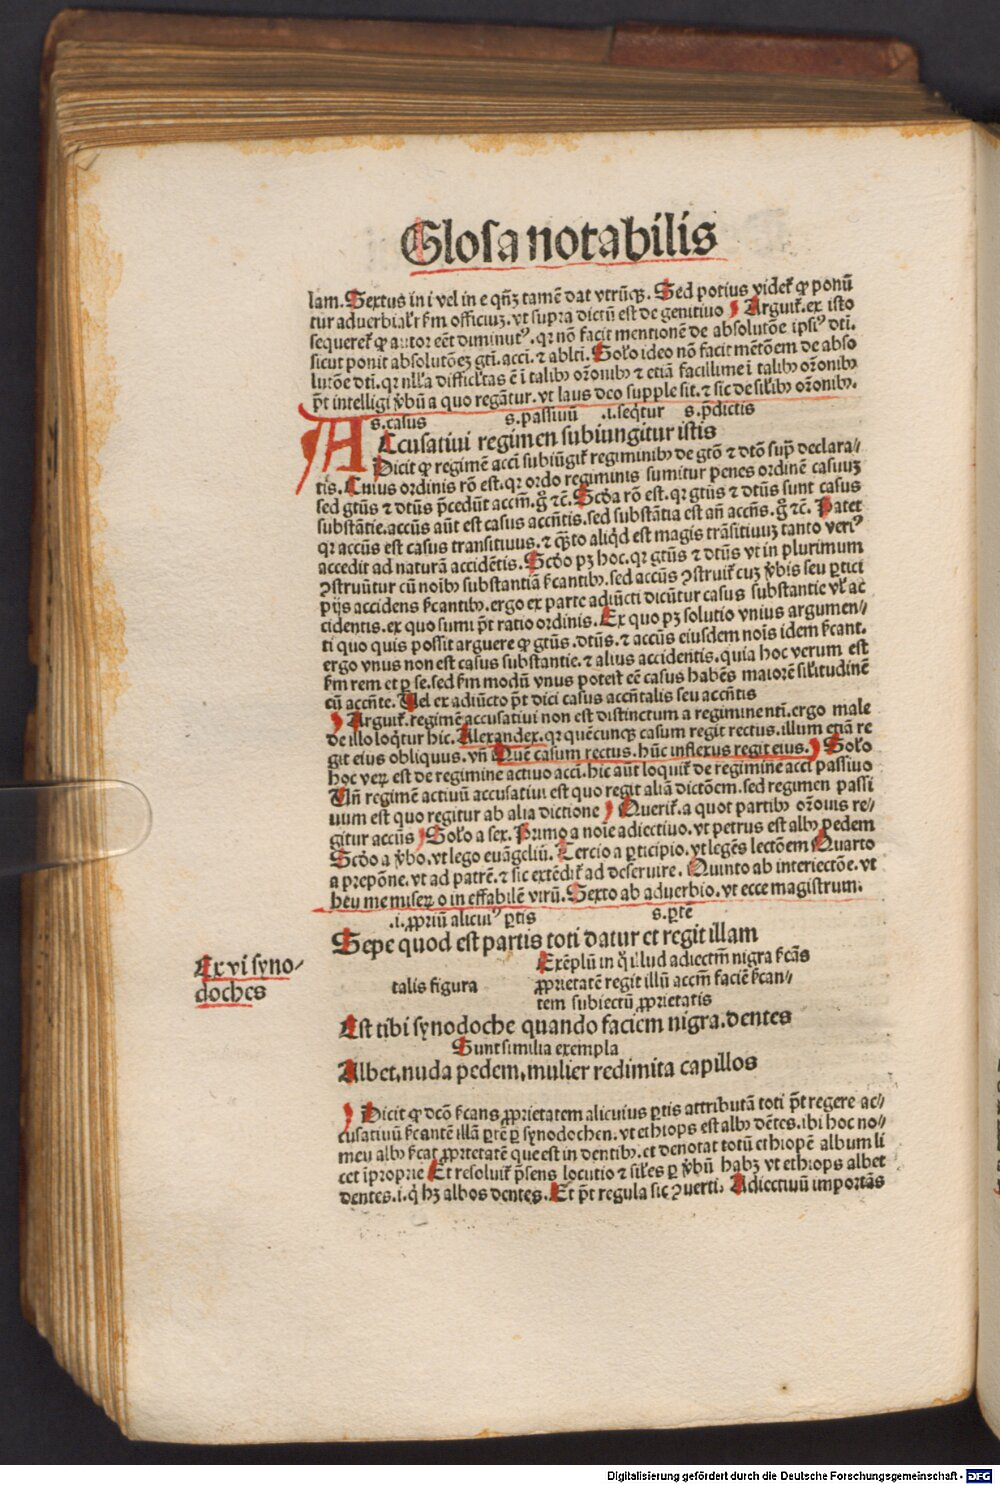 Glosa notabilis
lam. Sextus in i vel in e qñqꝫ tamē dat vtrūqꝫ. Sed potius videt̄ ꝙ ponū
tur aduerbialr̄ ẜm officiuꝫ. vt supra dictū est de genitiuo Arguit̄. ex isto
sequeret̄ ꝙ autor eēt diminutꝰ. qꝛ nō facit mentionē de absolutōe ipsiꝰ dti.
sicut ponit absolutōeꝫ gti. acci. ⁊ ablti. Solo ideo nō facit mētōem de abso
lutōe dti. qꝛ nlla difficltas ē ī talibꝫ orōnibꝫ ⁊ etiā facillime ī talibꝫ orōnibꝫ
pt̄ intelligi v̄bū a quo regāt̄ur. vt laus deo supple sit. ⁊ sic de silibꝫ orōnibꝫ.
s. casus s. passiuū .i. seqt̄ur s. p̄dictis
ACcusatiui regimen subiungitur istis
Dicit ꝙ regimē acci subiūgit̄ regiminibꝫ de gtō ⁊ dtō sup̄ declara/
tis. Cuius ordinis rō est. qꝛ ordo regiminis sumitur penes ordinē casuuꝫ
sed gtūs ⁊ dtūs p̄cedūt accm̄. gͦ ⁊c̄. Scd̄a rō est. qꝛ gtūs ⁊ dtūs sunt casus
substātie. accūs aūt est casus accn̄tis. sed substātia est añ accn̄s. gͦ ⁊c̄. Patet
qꝛ accūs est casus transitiuus. ⁊ qꝫto aliqd est magis trāsitiuuꝫ tanto veriꝰ
accedit ad naturā accidētis. Scd̄o pꝫ hoc. qꝛ gtūs ⁊ dtūs vt in plurimum
ꝯstruūtur cū noībꝫ substantiā ẜcantibꝫ. sed accūs ꝯstruit̄ cuꝫ v̄bis seu ꝑtici
pijs accidens ẜcantibꝫ. ergo ex parte adiūcti dicūtur casus substantie vl̄ ac
cidentis. ex quo sumi pt̄ ratio ordinis. Ex quo pꝫ solutio vnius argumen/
ti quo quis possit arguere ꝙ gtūs. dtūs. ⁊ accūs eiusdem nōis idem ẜcant.
ergo vnus non est casus substantie. ⁊ alius accidentis. quia hoc verum est
ẜm rem et ꝑ se. sed ẜm modū vnus poterit eē casus habēs maiorē silitudinē
cū accn̄te. Uel ex adiūcto pt̄ dici casus accn̄talis seu accn̄tis
Arguit̄. regimē accusatiui non est distinctum a regimine nti. ergo male
de illo loqt̄ur hic. Alexander. qꝛ quēcunqꝫ casum regit rectus. illum etiā re
git eius obliquus. vñ Quē casum rectus. hūc inflexus regit eius. Solo
hoc veꝝ est de regimine actiuo acci. hic aūt loquit̄ de regimine acci passiuo
Uñ regimē actiuū accusatiui est quo regit aliā dictōem. sed regimen passi
uum est quo regitur ab alia dictione Querit̄. a quot partibꝫ orōnis re/
gitur accūs Solo a sex. Primo a noīe adiectiuo. vt petrus est albꝫ pedem
Scd̄o a v̄bo. vt lego euāgeliū. Tercio a ꝑticipio. vt legēs lectōem Quarto
a prepōne. vt ad patrē. ⁊ sic extēdit̄ ad deseruire. Quinto ab interiectōe. vt
heu me miseꝝ o ineffabilē virū. Sexto ab aduerbio. vt ecce magistrum.
.i. ꝓpriū alicuiꝰ ꝑtis s. ꝑtē
Sepe quod est partis toti datur et regit illam
Ex vi syno-
doches
Exēplū in q̄ illud adiectm̄ nigra ẜcās
talis figura ꝓprietatē regit illū accm̄ faciē ẜcan/
tem subiectū ꝓprietatis
Est tibi synodoche quando faciem nigra. dentes
Sunt similia exempla
Albet. nuda pedem. mulier redimita capillos
Dicit ꝙ dcō ẜcans ꝓprietatem alicuius ꝑtis attributā toti pt̄ regere ac/
cusatiuū ẜcantē illā ꝑtē ꝑ synodochen. vt ethiops est albꝫ dētes. ibi hoc no/
men albꝫ ẜcat ꝓprietatē que est in dentibꝫ. et denotat totū ethiopē album li
cet īproprie Et resoluit̄ p̄sens locutio ⁊ siles ꝑ v̄bū habꝫ vt ethiops albet
dentes. i. q̄ hꝫ albos dentes. Et pt̄ regula sic ꝯuerti. Adiectiuū importās
Digitalisierung gefördert durch die Deutsche Forschungsgemeinschaft - DFG